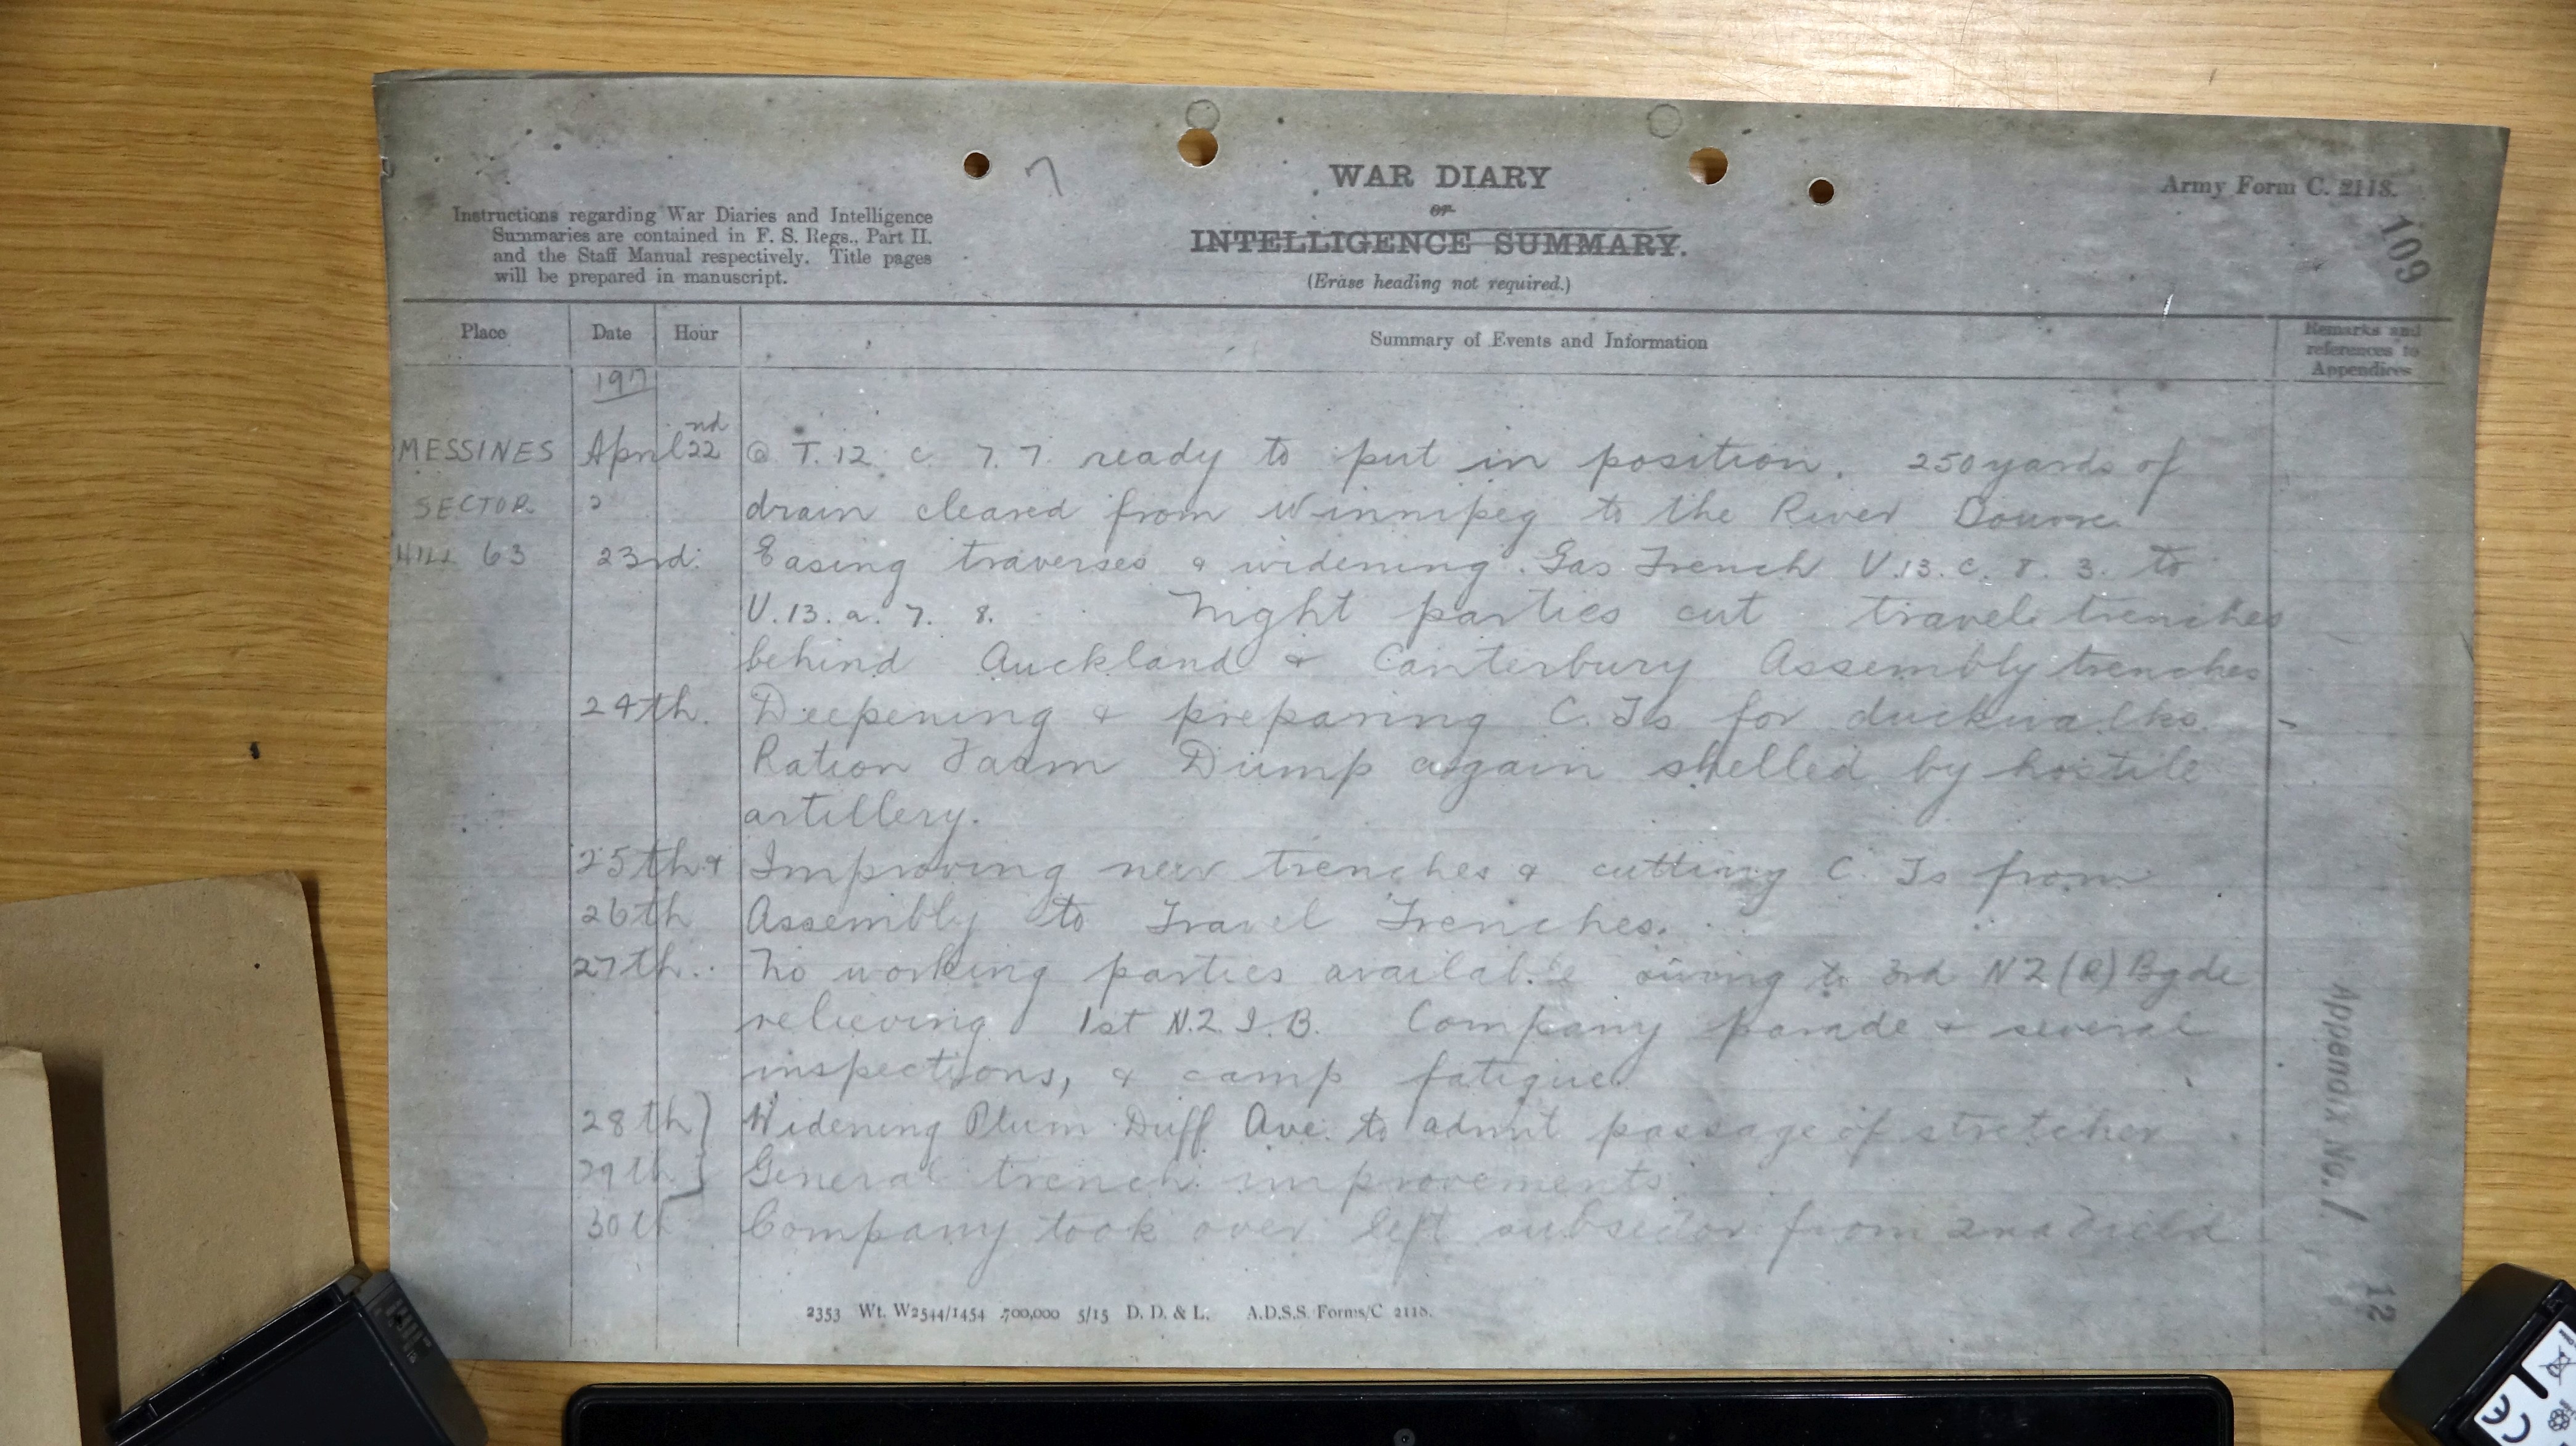 7
WAR DIARY
or
INTELLIGENCE SUMMARY.
(Erase heading not required.)
Army Form C. 2118.
109
Instructions regarding War Diaries and Intelligence
Summaries are contained in F. S. Regs., Part II.
and the Staff Manual respectively. Title pages
will be prepared in manuscript.
Place Date Hour Summary of Events and Information Remarks and references to Appendices
1917
MESSINES April 22nd @ T.12 c. 7.7. ready to put in position. 250 yards of
SECTOR drain cleared from Winnipeg to the River Douvre.
HILL 63 23rd. Easing traverses & widening Gas Trench U.13.c. 8. 3. to
U.13.a. 7. 8. Night parties cut travel trenches
behind Auckland & Canterbury Assembly trenches
24th. Deepening & preparing C.Ts for duckwalks.
Ration Farm Dump again shelled by hostile
artillery.
25th & Improving new trenches & cutting C.Ts from
26th Assembly to Travel Trenches.
27th. No working parties available owing to 3rd NZ (R) Bgde
relieving 1st N.Z.I.B. Company parade & several
inspections, & camp fatigue.
28th } Widening Plum Duff Ave. to admit passage of stretcher
29th } General trench improvements.
30th Company took over left subsector from 2nd Field
Appendix No. 1
12
2353 Wt. W2544/1454 700,000 5/15 D. D. & L. A.D.S.S. Forms/C 2118.